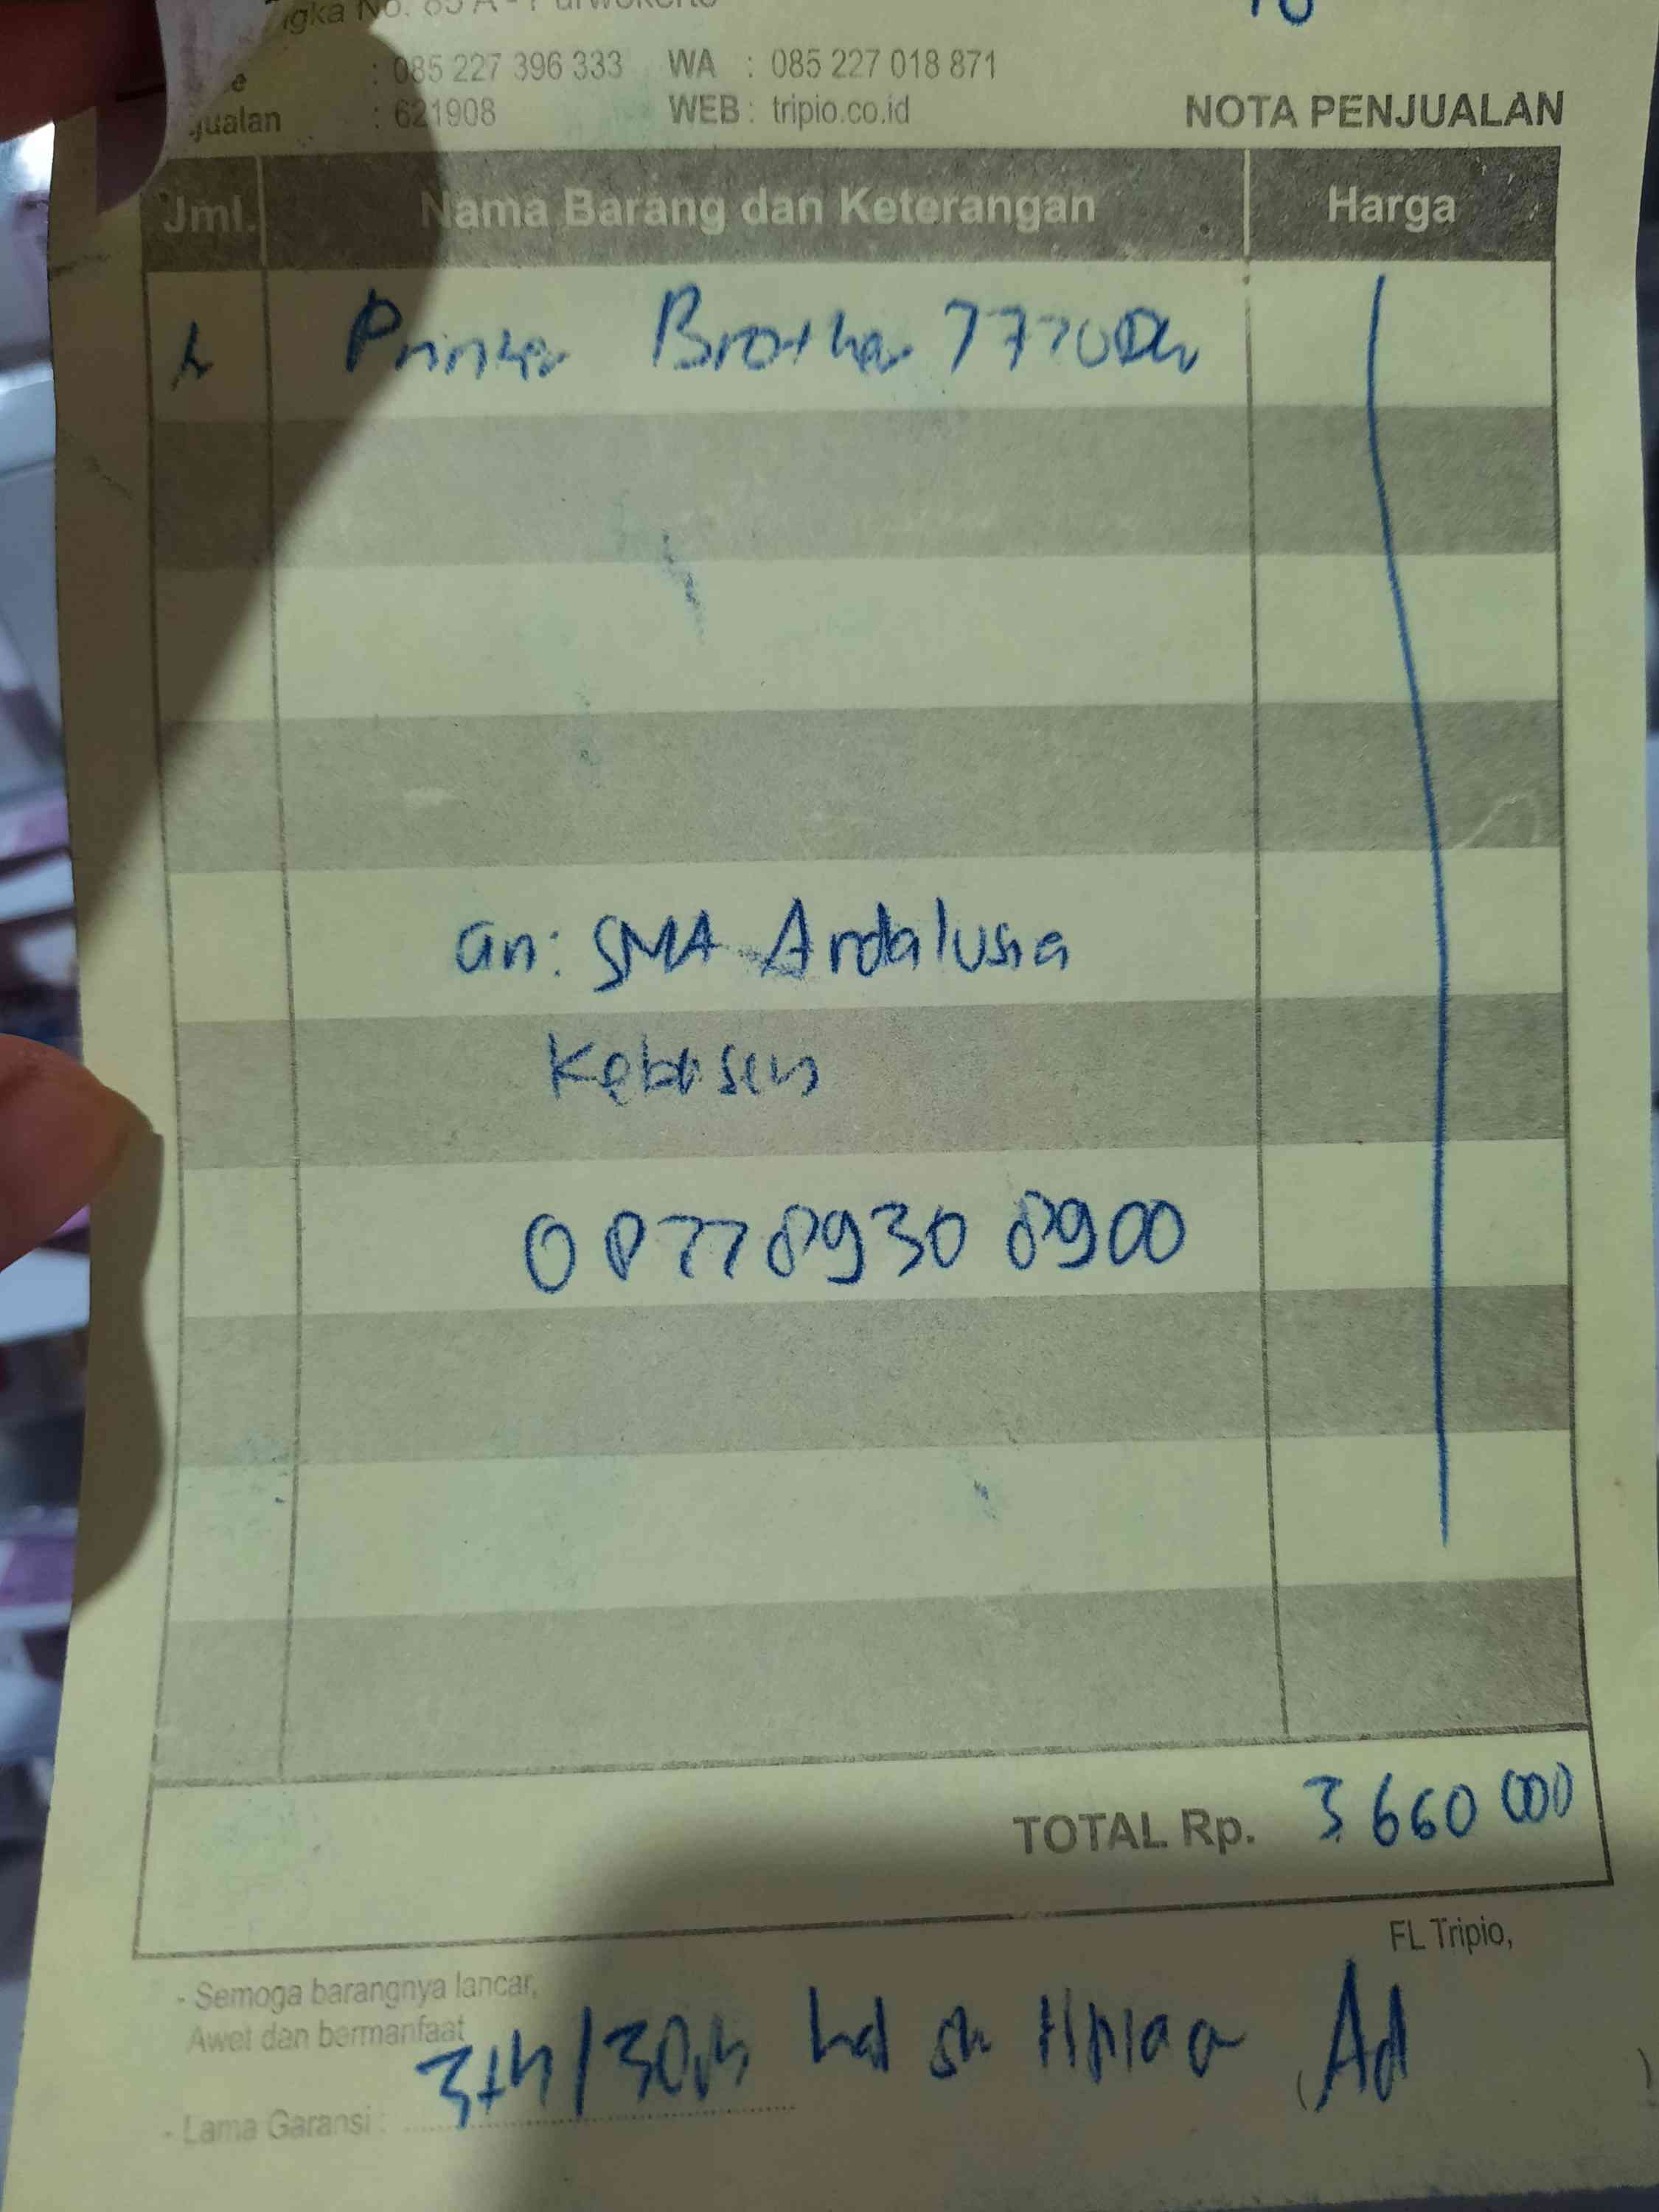 No. 85 A - Purwokerto
: 085 227 396 333 WA : 085 227 018 871
jualan : 621908 WEB : tripio.co.id
NOTA PENJUALAN
Jml. Nama Barang dan Keterangan Harga
1 Printer Brother 7770Dw
an: SMA Andalusia
Kebasen
0877 8930 8900
TOTAL Rp. 3 660 000
FL Tripio,
- Semoga barangnya lancar,
Awet dan bermanfaat
- Lama Garansi : 3th/30rb